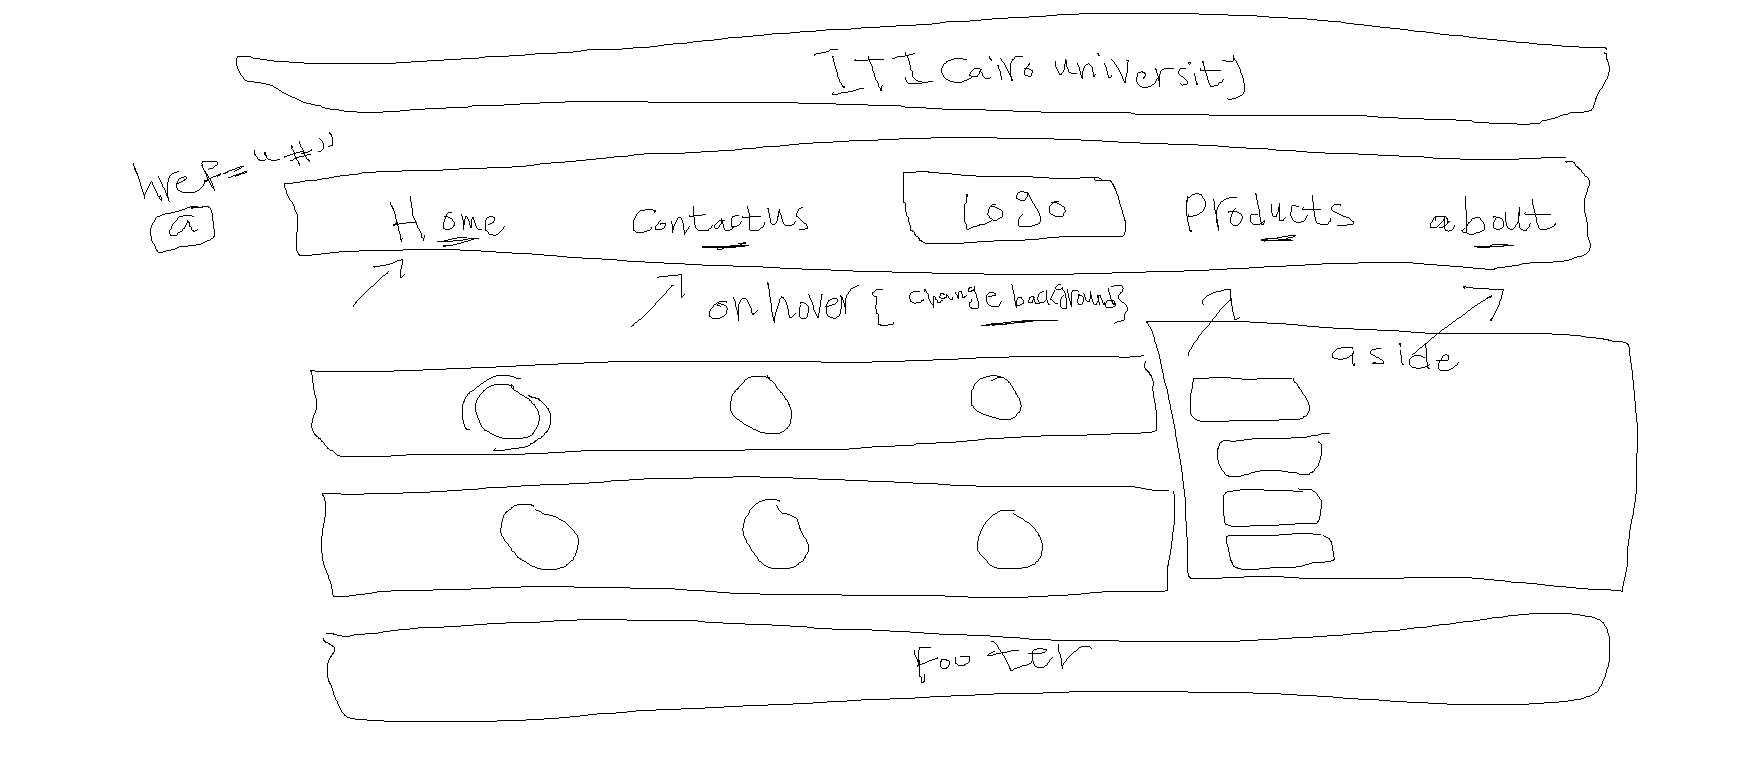 ITI Cairo university
href="#"
a
Home contactus Logo Products about
on hover { change background}
aside
Footer